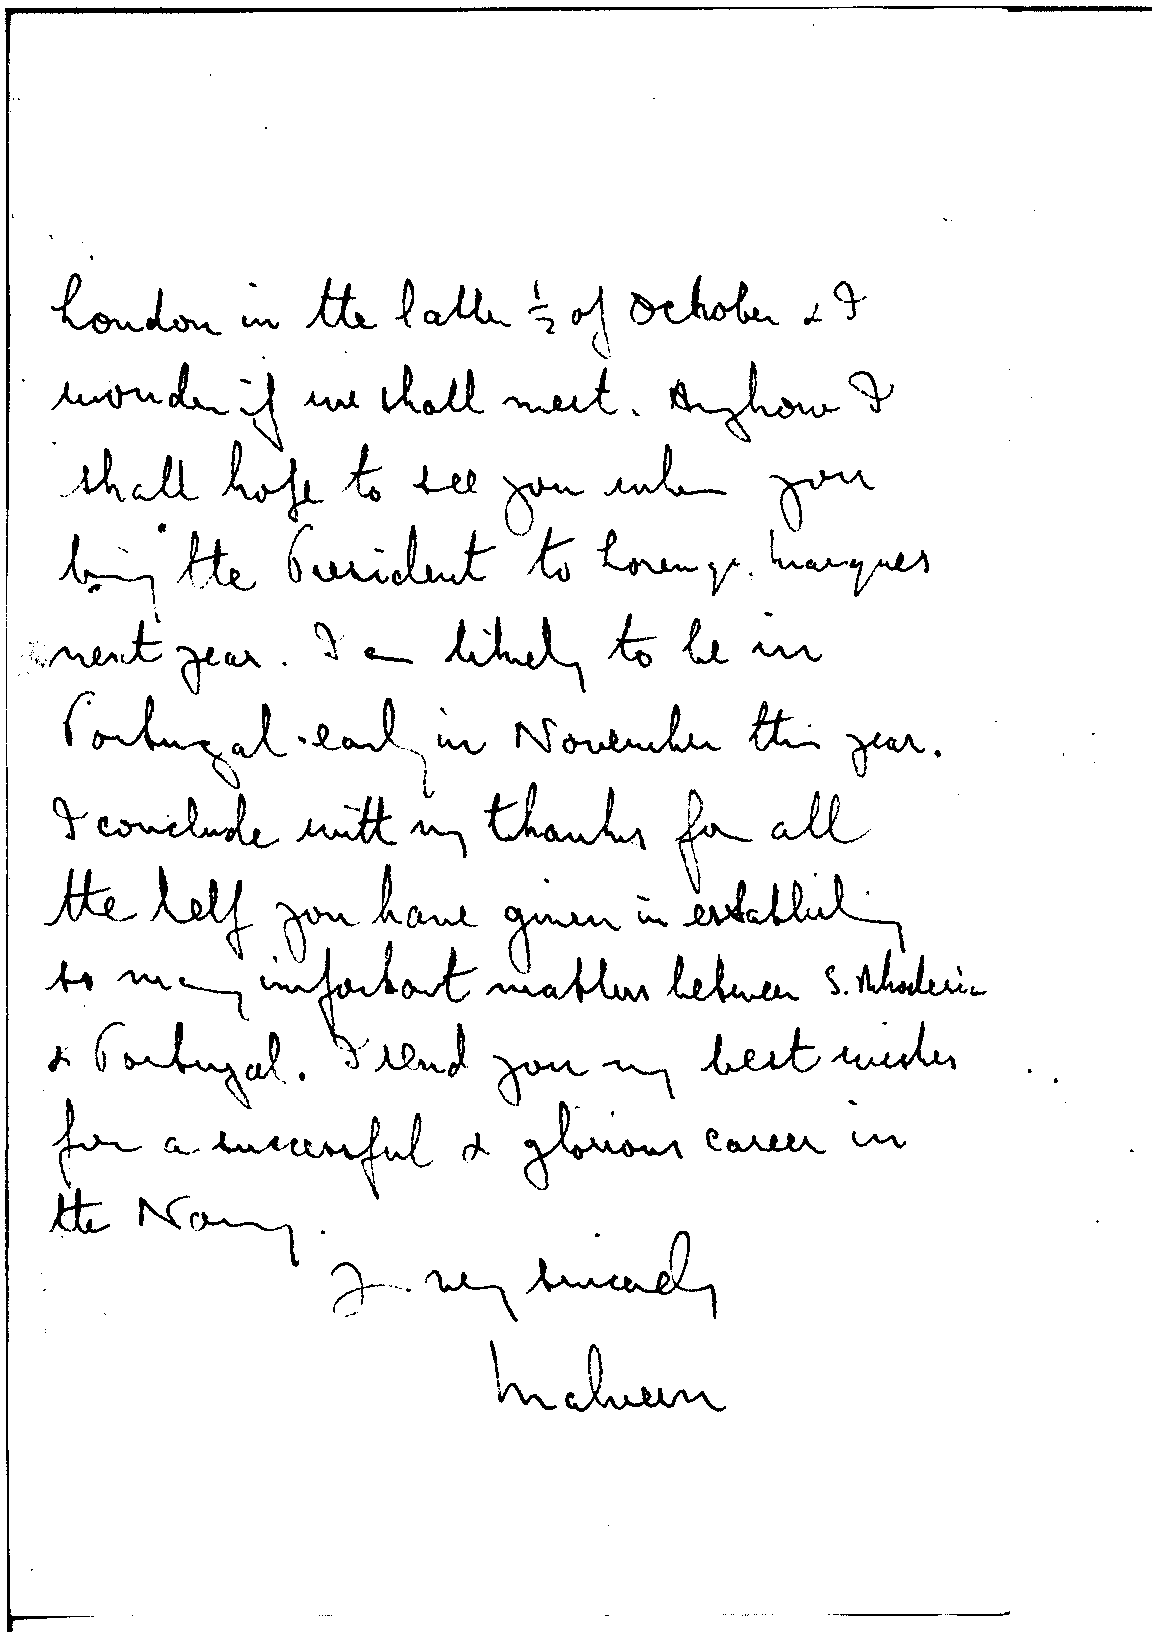 London in the latter ½ of October & I
wonder if we shall meet. Anyhow I
shall hope to see you when you
bring the President to Lorenço Marques
next year. I am likely to be in
Portugal early in November this year.
I conclude with my thanks for all
the help you have given in establishing
so many important matters between S. Rhodesia
& Portugal. I send you my best wishes
for a successful & glorious career in
the Navy.
Y. very sincerely
Malvern